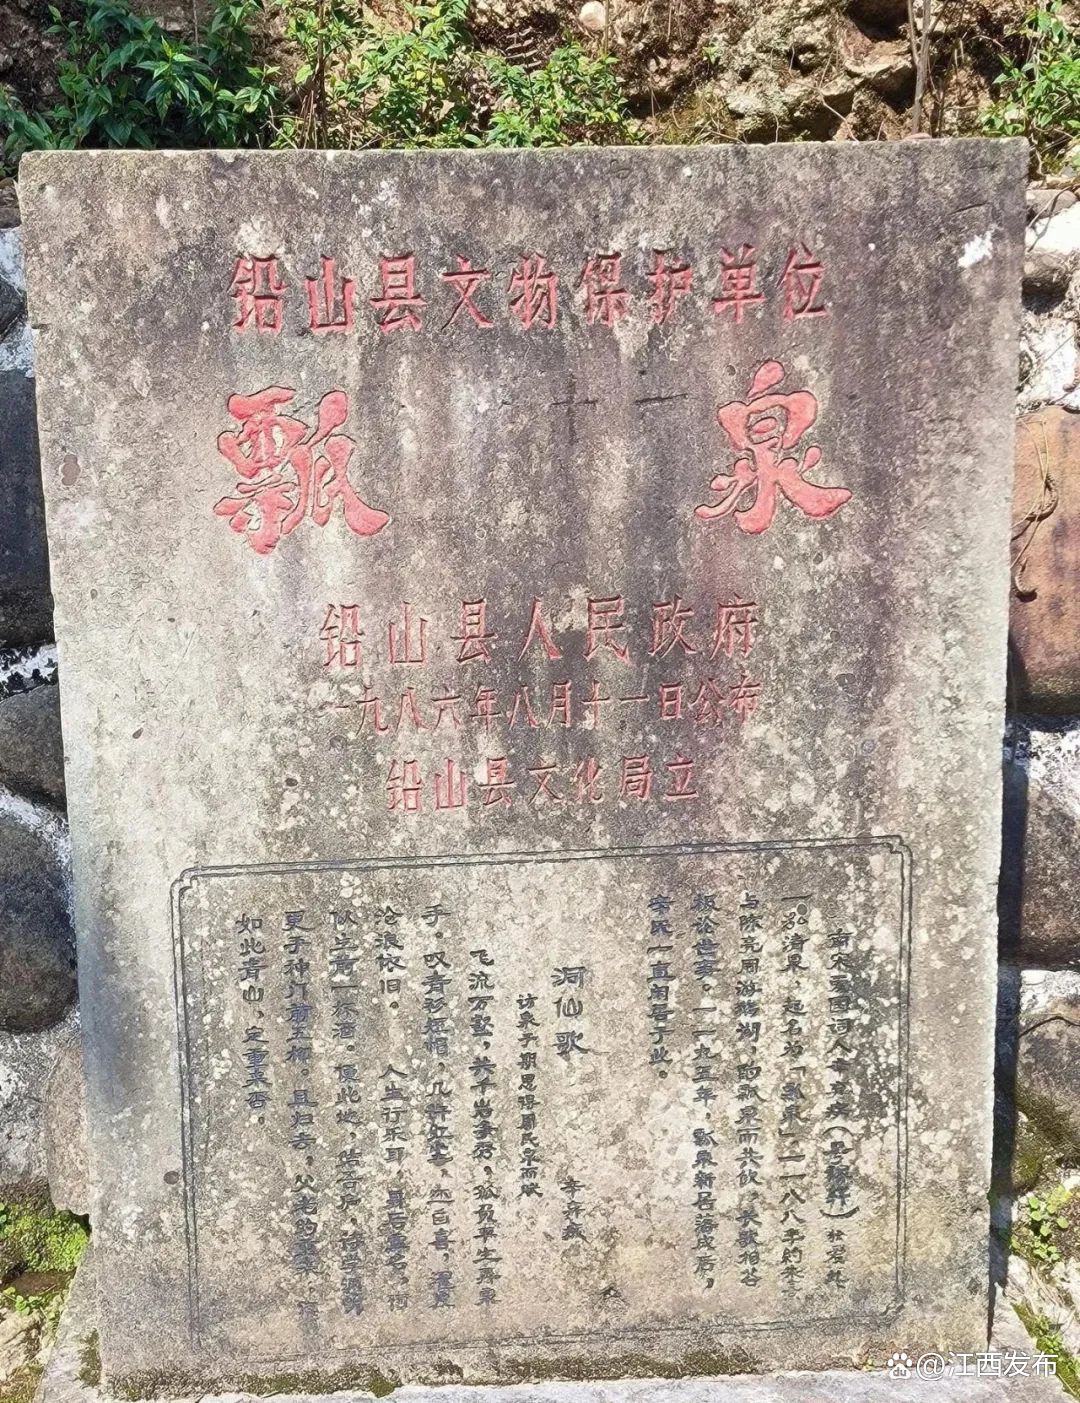 铅山县文物保护单位
瓢泉
铅山县人民政府
一九八六年八月十一日公布
铅山县文化局立
南宋爱国词人辛弃疾（号稼轩）
一泓清泉，起名为「瓢泉」一一八八年约
与陈亮同游鹅湖，酌瓢泉而共饮，长歌相答
极论世事。一一九五年，瓢泉新居落成后，
辛氏一直闲居于此。
洞仙歌 辛弃疾
访泉于期思得周氏泉而赋
飞流万壑，共千岩争秀，孤负平生弄泉
手。叹青衫短帽，几许红尘，还自喜，濯发
沧浪依旧。 人生行乐耳，身后虚名，何
似生前一杯酒。便此地，结吾庐，待学渊明
更手种门前五柳。且归去，父老约重来，
如此青山，定重来否。
@江西发布